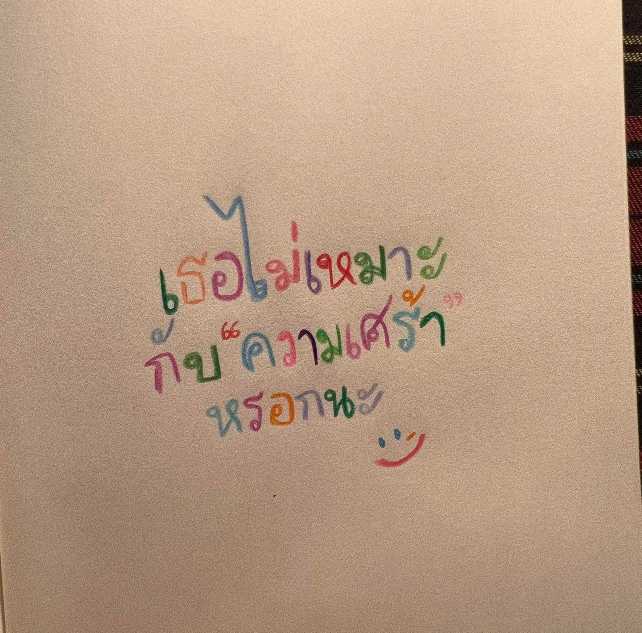 เธอไม่เหมาะ
กับ “ความเศร้า”
หรอกนะ